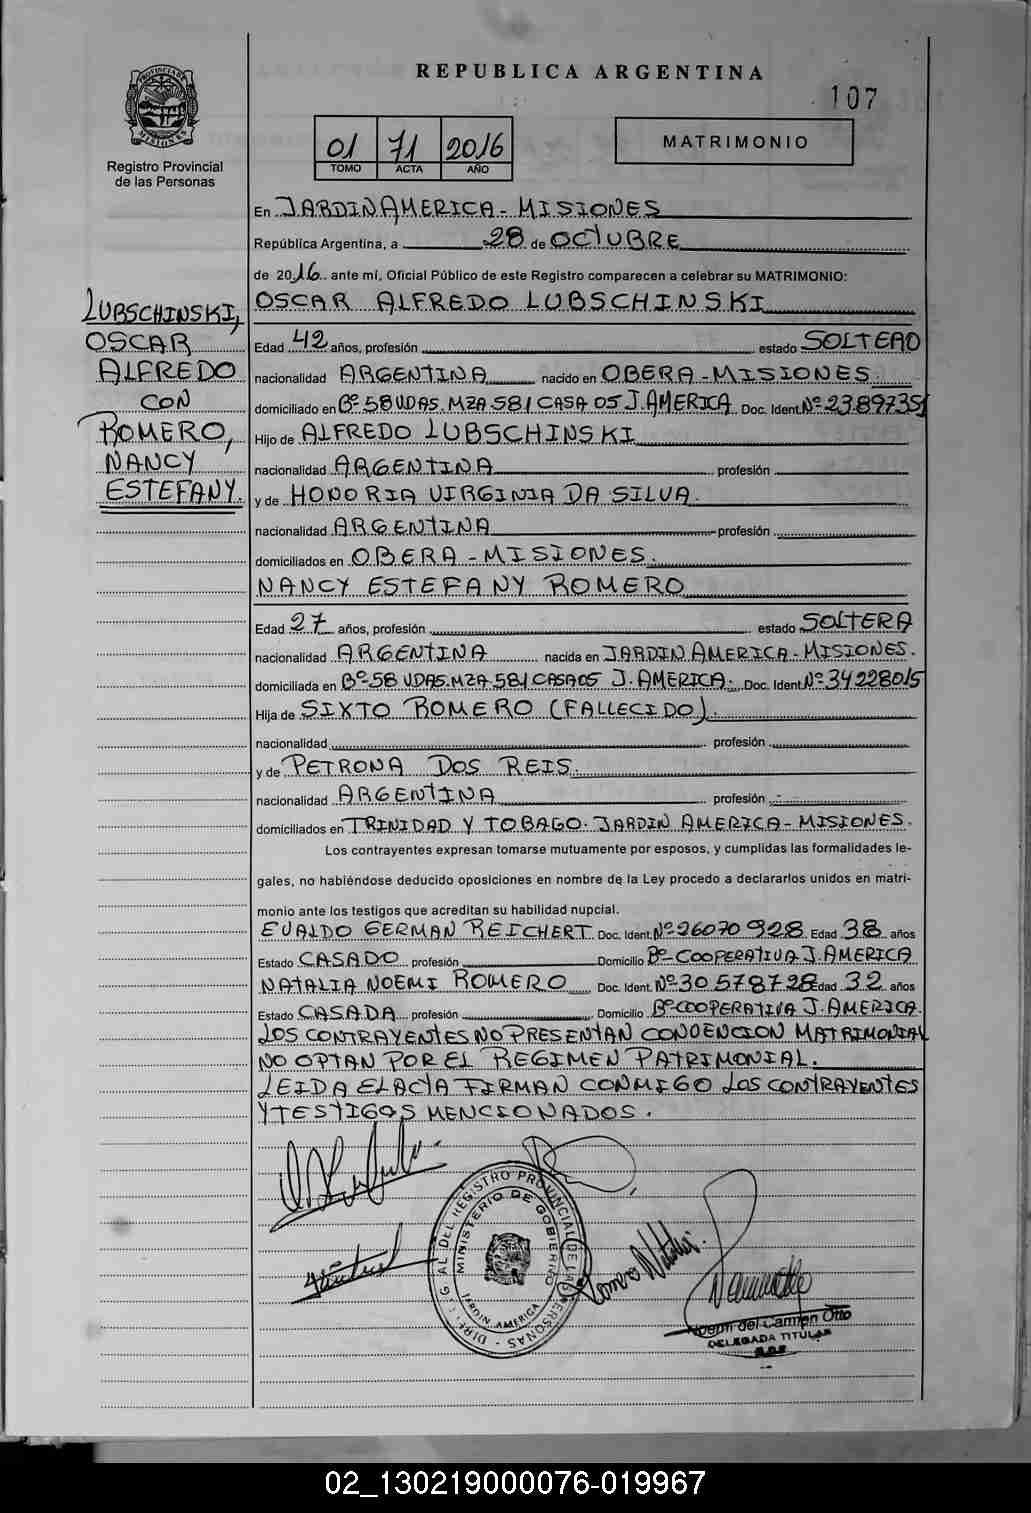 REPUBLICA ARGENTINA
107
Registro Provincial
de las Personas
01 71 2016
TOMO ACTA AÑO
MATRIMONIO
En JARDIN AMERICA - MISIONES
República Argentina, a 28 de OCTUBRE
de 2016 ante mí, Oficial Público de este Registro comparecen a celebrar su MATRIMONIO:
LUBSCHINSKI,
OSCAR
ALFREDO
CON
ROMERO,
NANCY
ESTEFANY.
OSCAR ALFREDO LUBSCHINSKI
Edad 42 años, profesión estado SOLTERO
nacionalidad ARGENTINA nacido en OBERA - MISIONES
domiciliado en Bº 58 VDAS. MZA 581 CASA 05 J. AMERICA Doc. Ident. Nº 23897351
Hijo de ALFREDO LUBSCHINSKI
nacionalidad ARGENTINA profesión
y de HONORIA VIRGINIA DA SILVA.
nacionalidad ARGENTINA profesión
domiciliados en OBERA - MISIONES.
NANCY ESTEFANY ROMERO
Edad 27 años, profesión estado SOLTERA
nacionalidad ARGENTINA nacida en JARDIN AMERICA - MISIONES.
domiciliada en Bº 58 VDAS. MZA 581 CASA 05 J. AMERICA. Doc. Ident. Nº 34228015
Hija de SIXTO ROMERO (FALLECIDO).
nacionalidad profesión
y de PETRONA DOS REIS.
nacionalidad ARGENTINA profesión
domiciliados en TRINIDAD Y TOBAGO. JARDIN AMERICA - MISIONES.
Los contrayentes expresan tomarse mutuamente por esposos, y cumplidas las formalidades le-
gales, no habiéndose deducido oposiciones en nombre de la Ley procedo a declararlos unidos en matri-
monio ante los testigos que acreditan su habilidad nupcial.
EVALDO GERMAN REICHERT Doc. Ident. Nº 26070928 Edad 38 años
Estado CASADO profesión Domicilio Bº COOPERATIVA J. AMERICA
NATALIA NOEMI ROMERO Doc. Ident. Nº 30578728 Edad 32 años
Estado CASADA profesión Domicilio Bº COOPERATIVA J. AMERICA.
LOS CONTRAYENTES NO PRESENTAN CONVENCION MATRIMONIAL
NO OPTAN POR EL REGIMEN PATRIMONIAL.
LEIDA EL ACTA FIRMAN CONMIGO LOS CONTRAYENTES
Y TESTIGOS MENCIONADOS.
REGISTRO PROVINCIAL DE LAS PERSONAS
MINISTERIO DE GOBIERNO
JARDIN AMERICA
Romero Natalia
Noemi del Carmen Otto
DELEGADA TITULAR
02_130219000076-019967